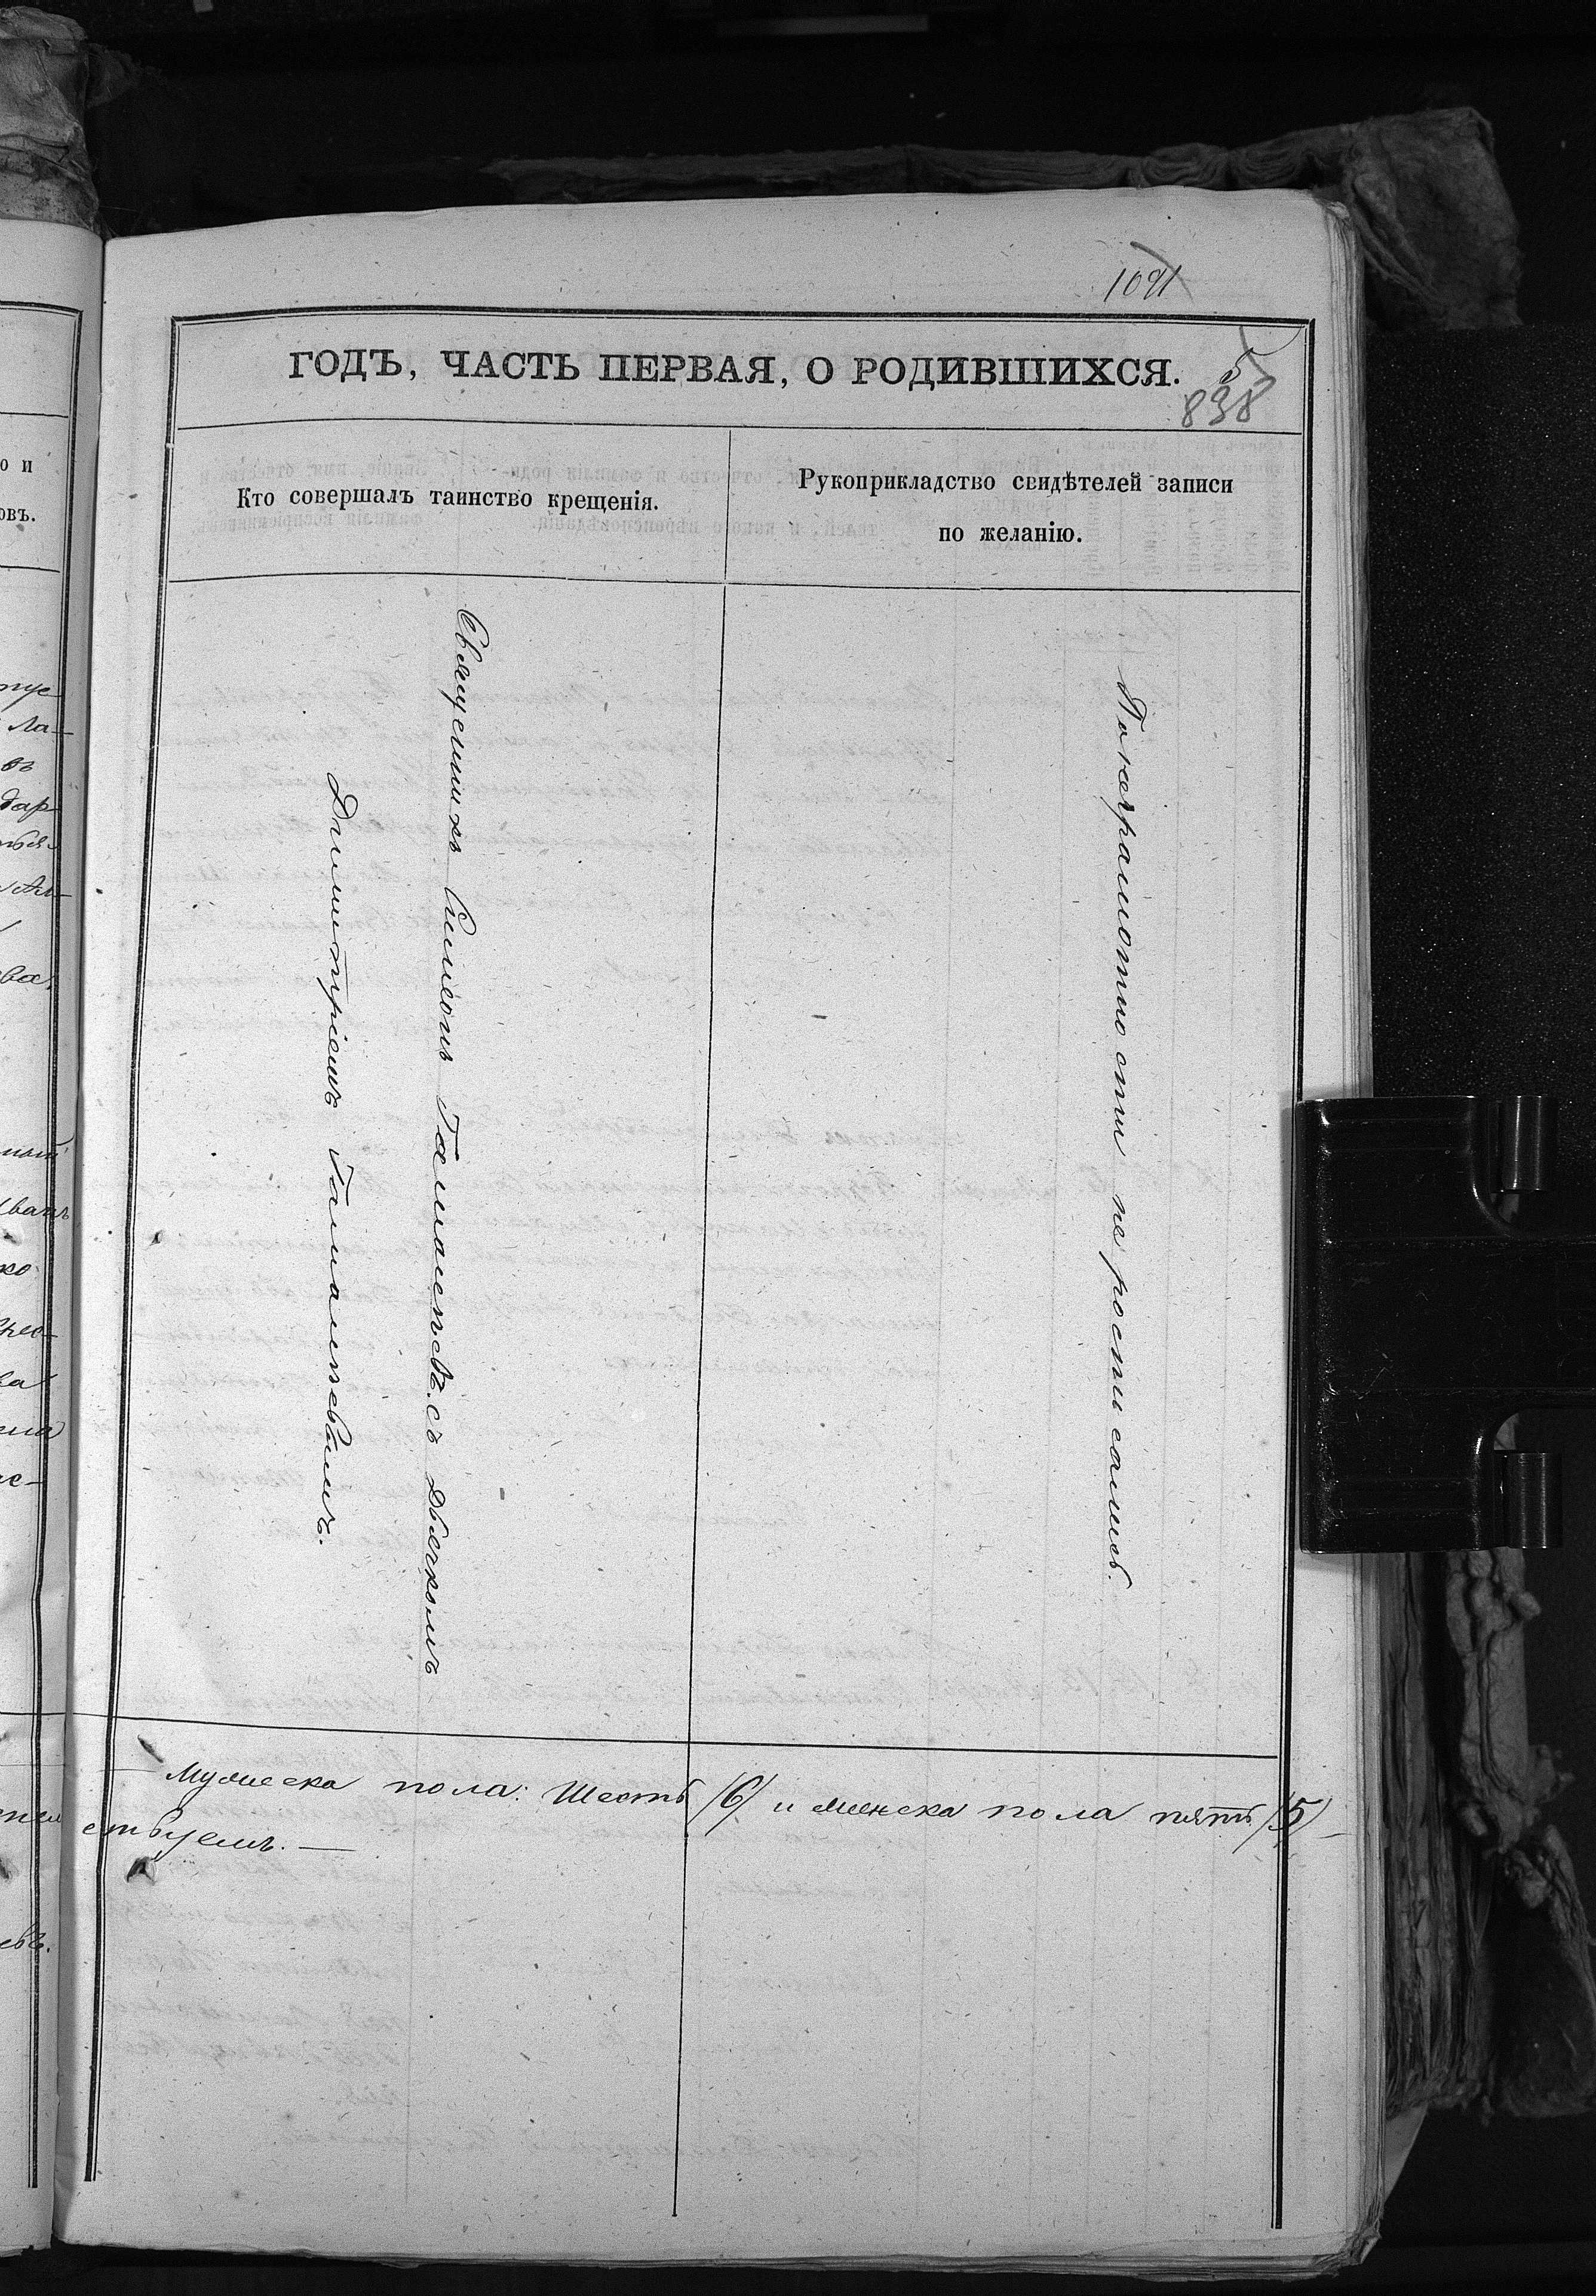 1091
ГОДЪ, ЧАСТЬ ПЕРВАЯ, О РОДИВШИХСЯ. 5
838
Кто совершалъ таинство крещенія.
Рукоприкладство свидѣтелей записи
по желанію.
Священникъ Симеонъ Гамалѣевъ. съ дьячкомъ
Димитріемъ Гамалѣевымъ.
По неграмотности не росписались.
Мужеска пола: Шесть /6/ и женска пола пять /5/
ствуемъ. —
о и
овъ.